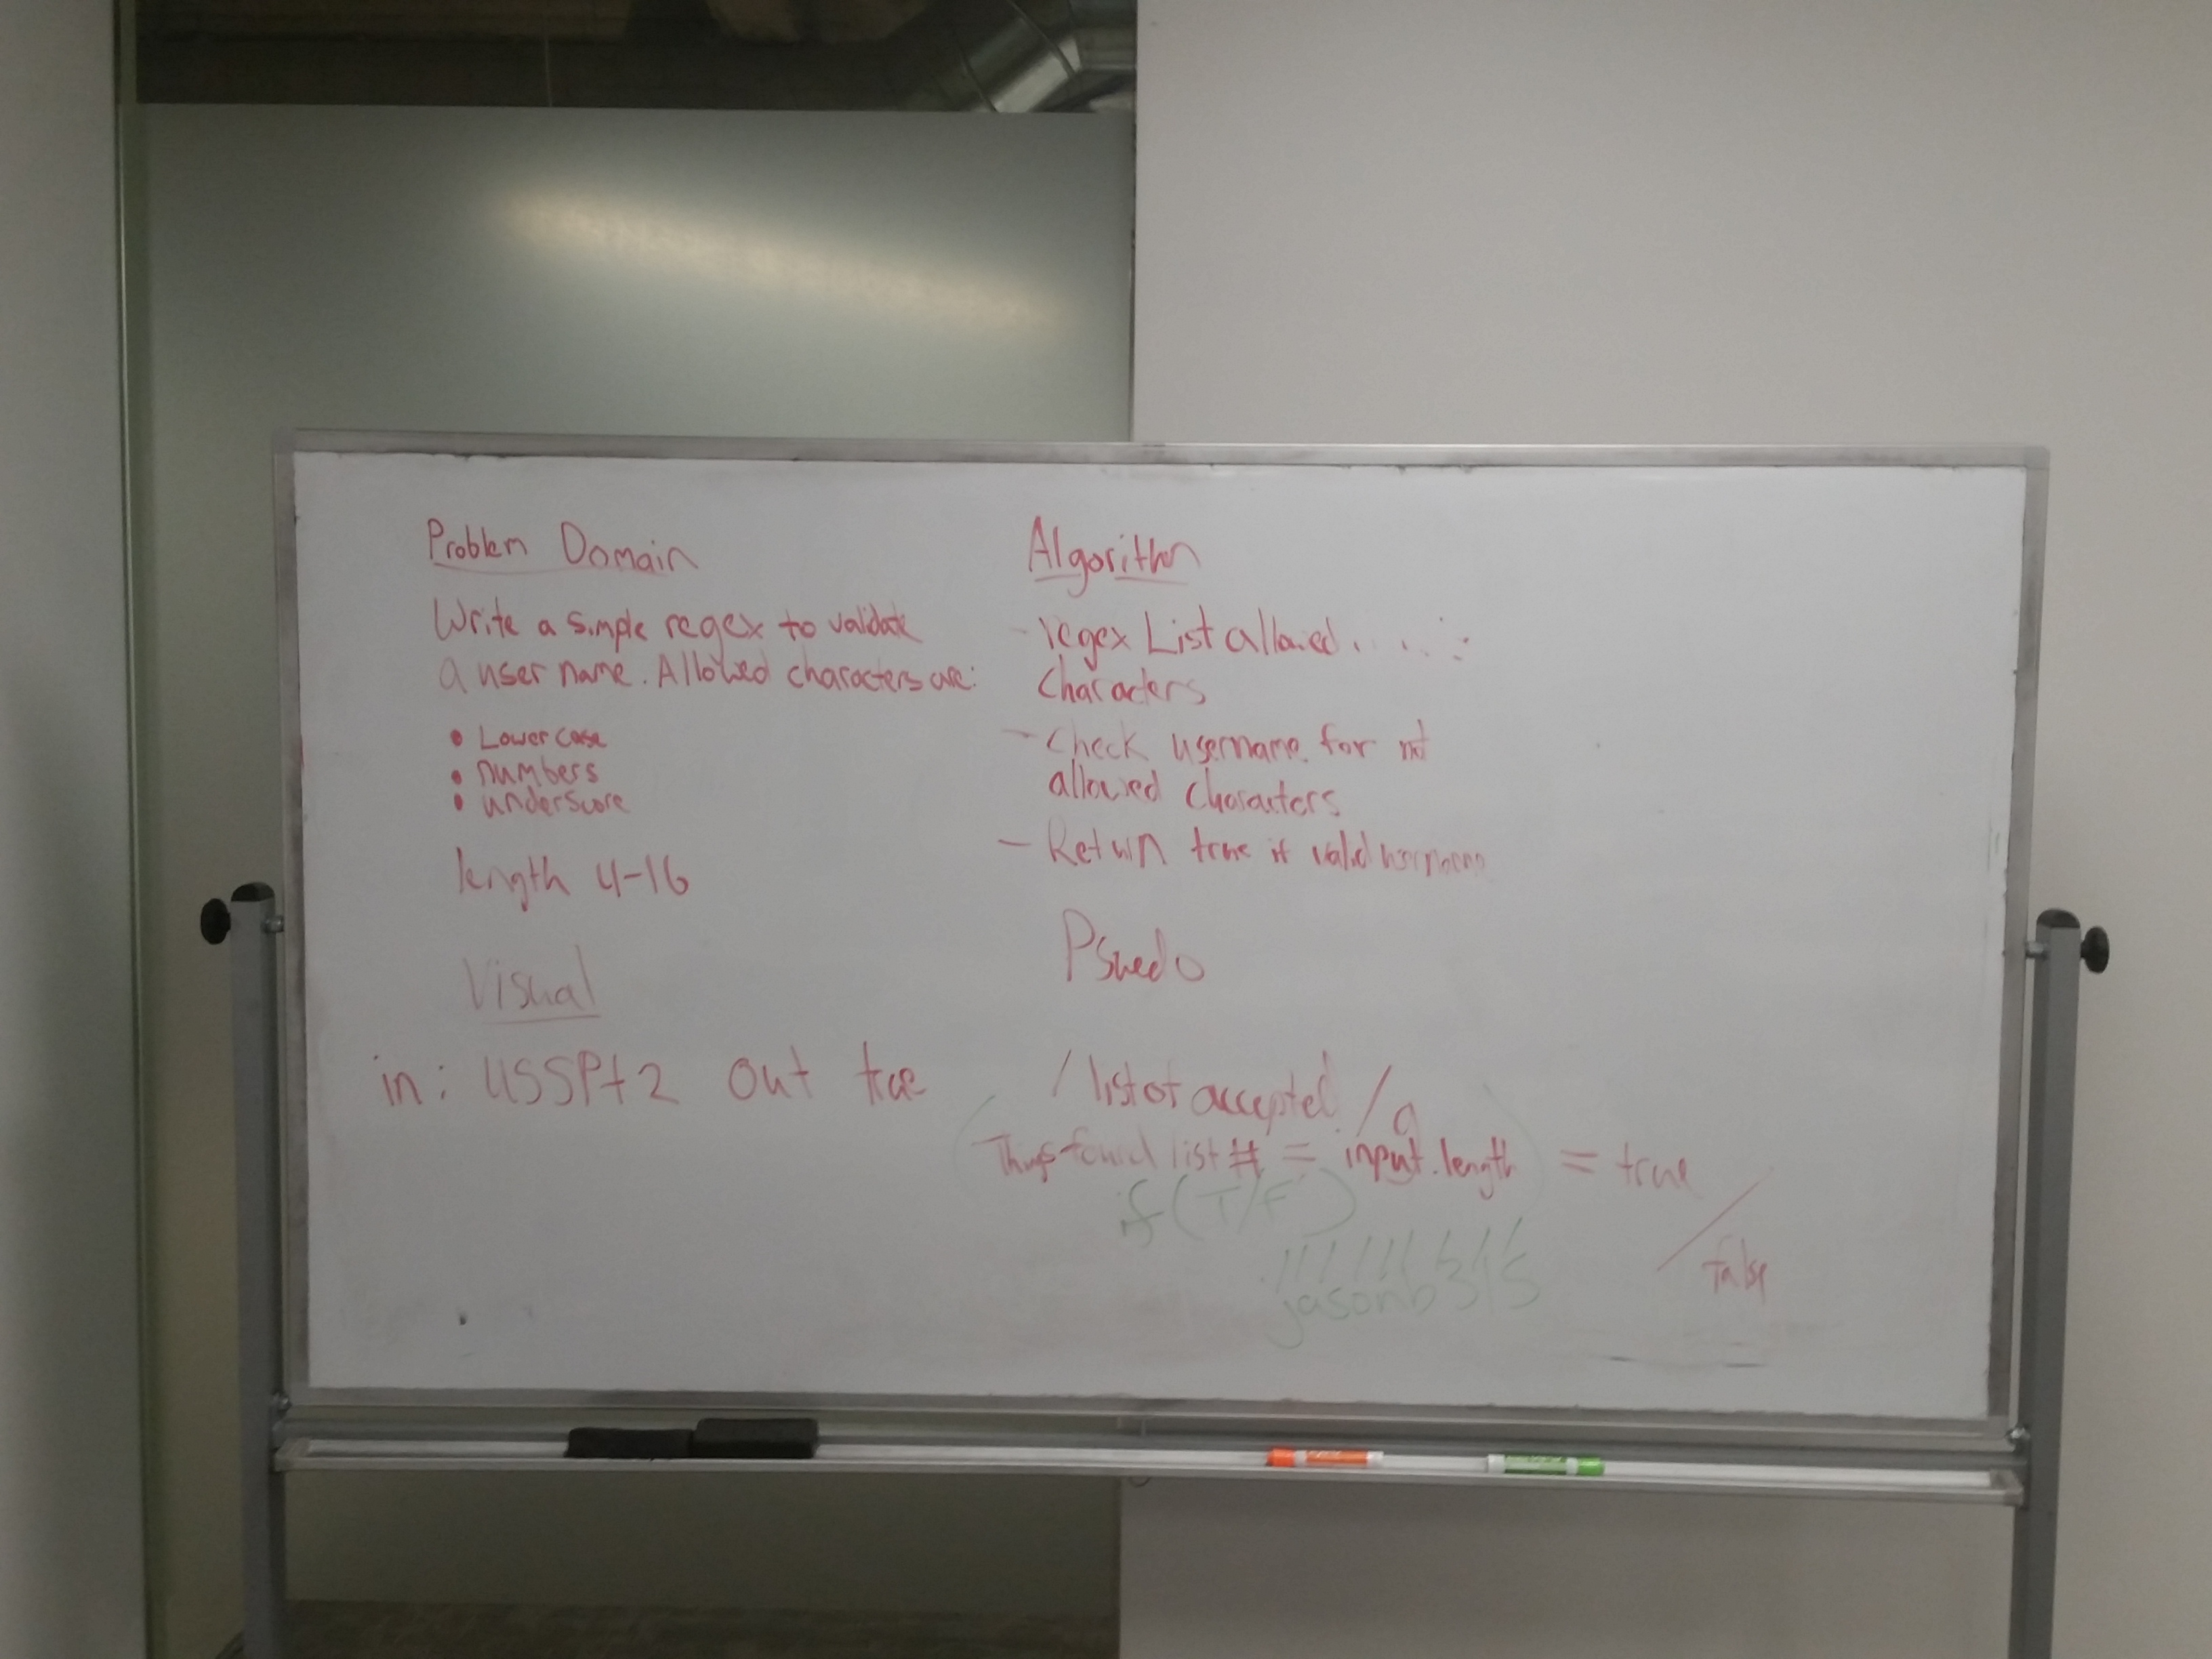 Problem Domain
Write a simple regex to validate
a user name. Allowed characters are:
• Lower case
• numbers
• underscore
length 4-16
Visual
in: USSPt2 out true
Algorithm
- regex List allowed
Characters
- Check username for not
allowed characters
- Return true if valid username
Psuedo
/ list of accepted / g
Things found list # = input.length = true
/ false
if (T/F)
jasonb315